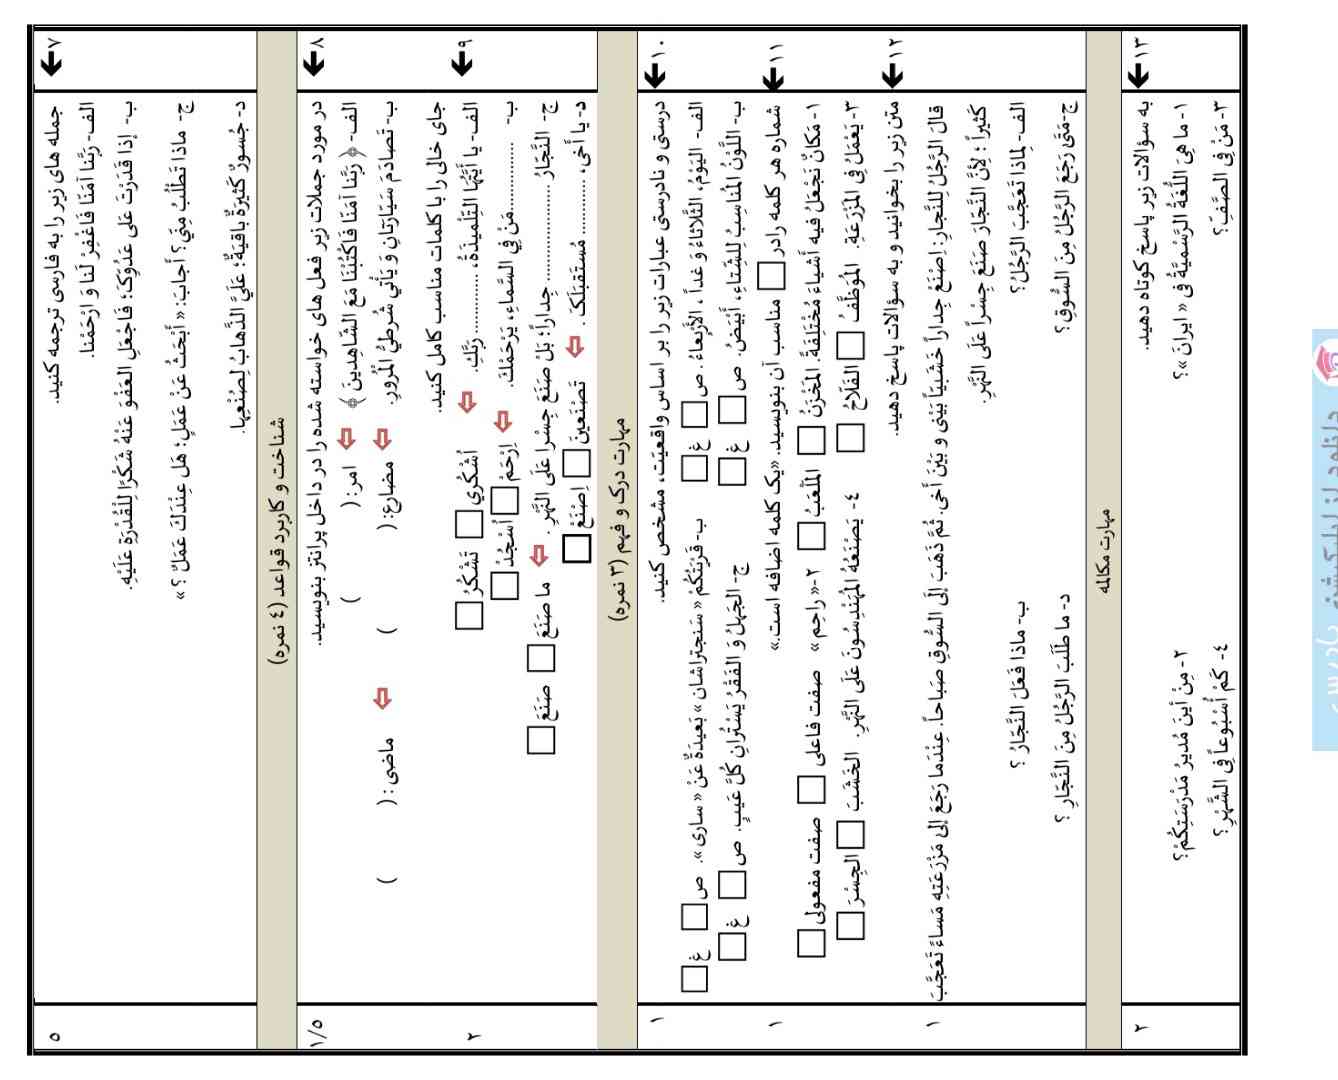 ۷ جمله های زیر را به فارسی ترجمه کنید. ۵
الف- رَبَّنا آمَنّا فَاغْفِرْ لَنا وَ ارْحَمْنا.
ب- إذا قَدَرْتَ عَلی عَدُوِّکَ؛ فَاجْعَلِ العَفوَ عَنْهُ شُکْرًا لِلْقُدْرَةِ عَلَیْهِ.
ج- ماذا تَطْلُبُ مِنِّي؟ أَجابَ: « أَبْحَثُ عَنْ عَمَلٍ؛ هَل عِنْدَكَ عَمَلٌ ؟ »
د- جُسورٌ کَثیرَةٌ باقیَةٌ؛ عَلَيَّ الذَّهابُ لِصُنْعِها.
شناخت و کاربرد قواعد (٤ نمره)
۸ در مورد جملات زیر فعل های خواسته شده را در داخل پرانتز بنویسید. ۱/۵
الف- ﴿ رَبَّنا آمَنّا فَاکْتُبْنا مَعَ الشّاهِدینَ ﴾ امر: ( )
ب- تَصادَمَ سَیّارَتانِ وَ یَأْتي شُرطِيُّ الْمُرورِ. مضارع: ( ) ماضی: ( )
۹ جای خالی را با کلمات مناسب کامل کنید. ۲
الف- یا أَیَّتُهَا التِّلْمیذَةُ، .......... رَبَّكِ. اُشْکُري تَشْکُرُ
ب- ..........مَنْ فِي السَّماءِ، یَرْحَمْكَ. اِرْحَمْ اُسْجُدْ
ج- النَّجّارُ .......... جِداراً؛ بَلْ صَنَعَ جِسْرا عَلَی النَّهْرِ . ما صَنَعَ صَنَعَ
د- یا أَخي، ..........مُستَقبَلَكَ . تَصْنَعینَ اِصْنَعْ
مهارت درک و فهم (۳ نمره)
۱۰ درستی و نادرستی عبارات زیر را بر اساس واقعیّت، مشخص کنید. ۱
الف- الیَومُ، الثَّلاثاءُ وَ غداً ، الأَربِعاءُ . ص غ ب- قَریَتُکُمْ « سَنجتراشان » بَعیدَةٌ عَنْ « ساری ». ص غ
ب- اللَّوْنُ المُناسِبُ لِلشِّتاءِ، أَبْیَضُ. ص غ ج- الجَهلُ وَ الفَقْرُ یَستُرانِ کُلَّ عَیبٍ. ص غ
۱۱ شماره هر کلمه رادر مناسب آن بنویسید. «یک کلمه اضافه است.» ۱
۱- مَکانٌ نَجْعَلُ فیهِ أَشیاءَ مُختَلِفَةً. المَخزَنُ المَلْعَبُ ۲-« راحِم » صفت فاعلی صفت مفعولی
۳- یَعْمَلُ فِي المَزْرَعَةِ. المُوَظَّفُ الفَلّاحُ ٤- یَصْنَعُهُ المُهَندِسُونَ عَلَی النَّهْرِ. الخَشَبَ الجِسْرَ
۱۲ متن زیر را بخوانید و به سؤالات پاسخ دهید. ۱
قالَ الرَّجُلُ لِلنَّجّارِ: اِصْنَعْ جِداراً خَشَبیّاً بَیْنی وَ بَیْنَ أَخی. ثُمَّ ذَهَبَ إِلَی السُّوقِ صَباحاً. عِنْدَما رَجَعَ إِلی مَزْرَعَتِهِ مَساءً تَعَجَّبَ
کَثیراً ؛ لِأَنَّ النَّجّارَ صَنَعَ جِسْراً عَلَی النَّهْرِ.
الف- لِماذا تَعَجَّبَ الرَّجُلُ؟ ب- ماذا فَعَلَ النَّجّارُ ؟
ج-مَتَی رَجَعَ الرَّجُلُ مِنَ السُّوقِ؟ د- ما طَلَبَ الرَّجُلُ مِنَ النَّجّارِ ؟
مهارت مکالمه
۱۳ به سؤالات زیر پاسخ کوتاه دهید. ۲
۱- ما هِیَ اللُّغَةُ الرَّسْمیَّةُ فی « ایرانَ »؟ ۲- مِنْ أَینَ مُدیرُ مَدْرَسَتِکُمْ؟
۳- مَنْ فِی الصَّفِّ؟ ٤- کَمْ أُسْبُوعاً فِی الشَّهْرِ؟